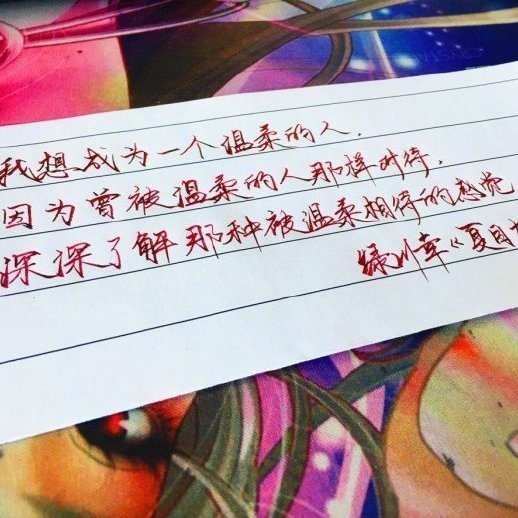 我想成为一个温柔的人.
因为曾被温柔的人那样对待.
深深了解那种被温柔相待的感觉
绿川幸《夏目